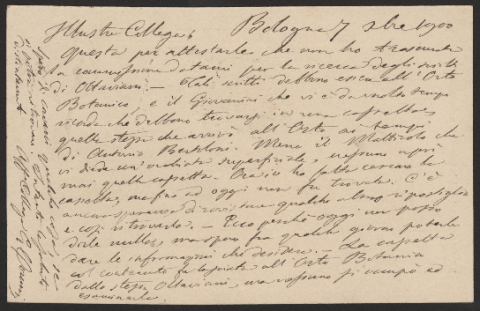 Illustre Collega,
Bologna 7 Xbre 1900
Questa per attestarle che non ho trascurato
la commissione datami per la ricerca degli scritti
di Ottaviani. — Tali scritti debbono essere all'Orto
Botanico; e il Giovannini che vi è da molto tempo
ricorda che debbono trovarsi in una cassetta,
quella stessa che arrivò all'Orto ai tempi
di Antonio Bertoloni. Meno il Mattirolo che
vi diede un'occhiata superficiale, nessuno aprì
mai quella cassetta. Ora io ho fatto cercare la
cassetta, ma fino ad oggi non fu trovata. C'è
ancora speranza di
e così ritrovarla. — Ecco perchè oggi non posso
dirle nulla; ma spero fra qualche giorno poterle
dare le informazioni che desidera. — La cassetta
col contenuto fu legata all'Orto Botanico
dallo stesso Ottaviani, ma nessuno si occupò ad
esaminarla.
Spero di